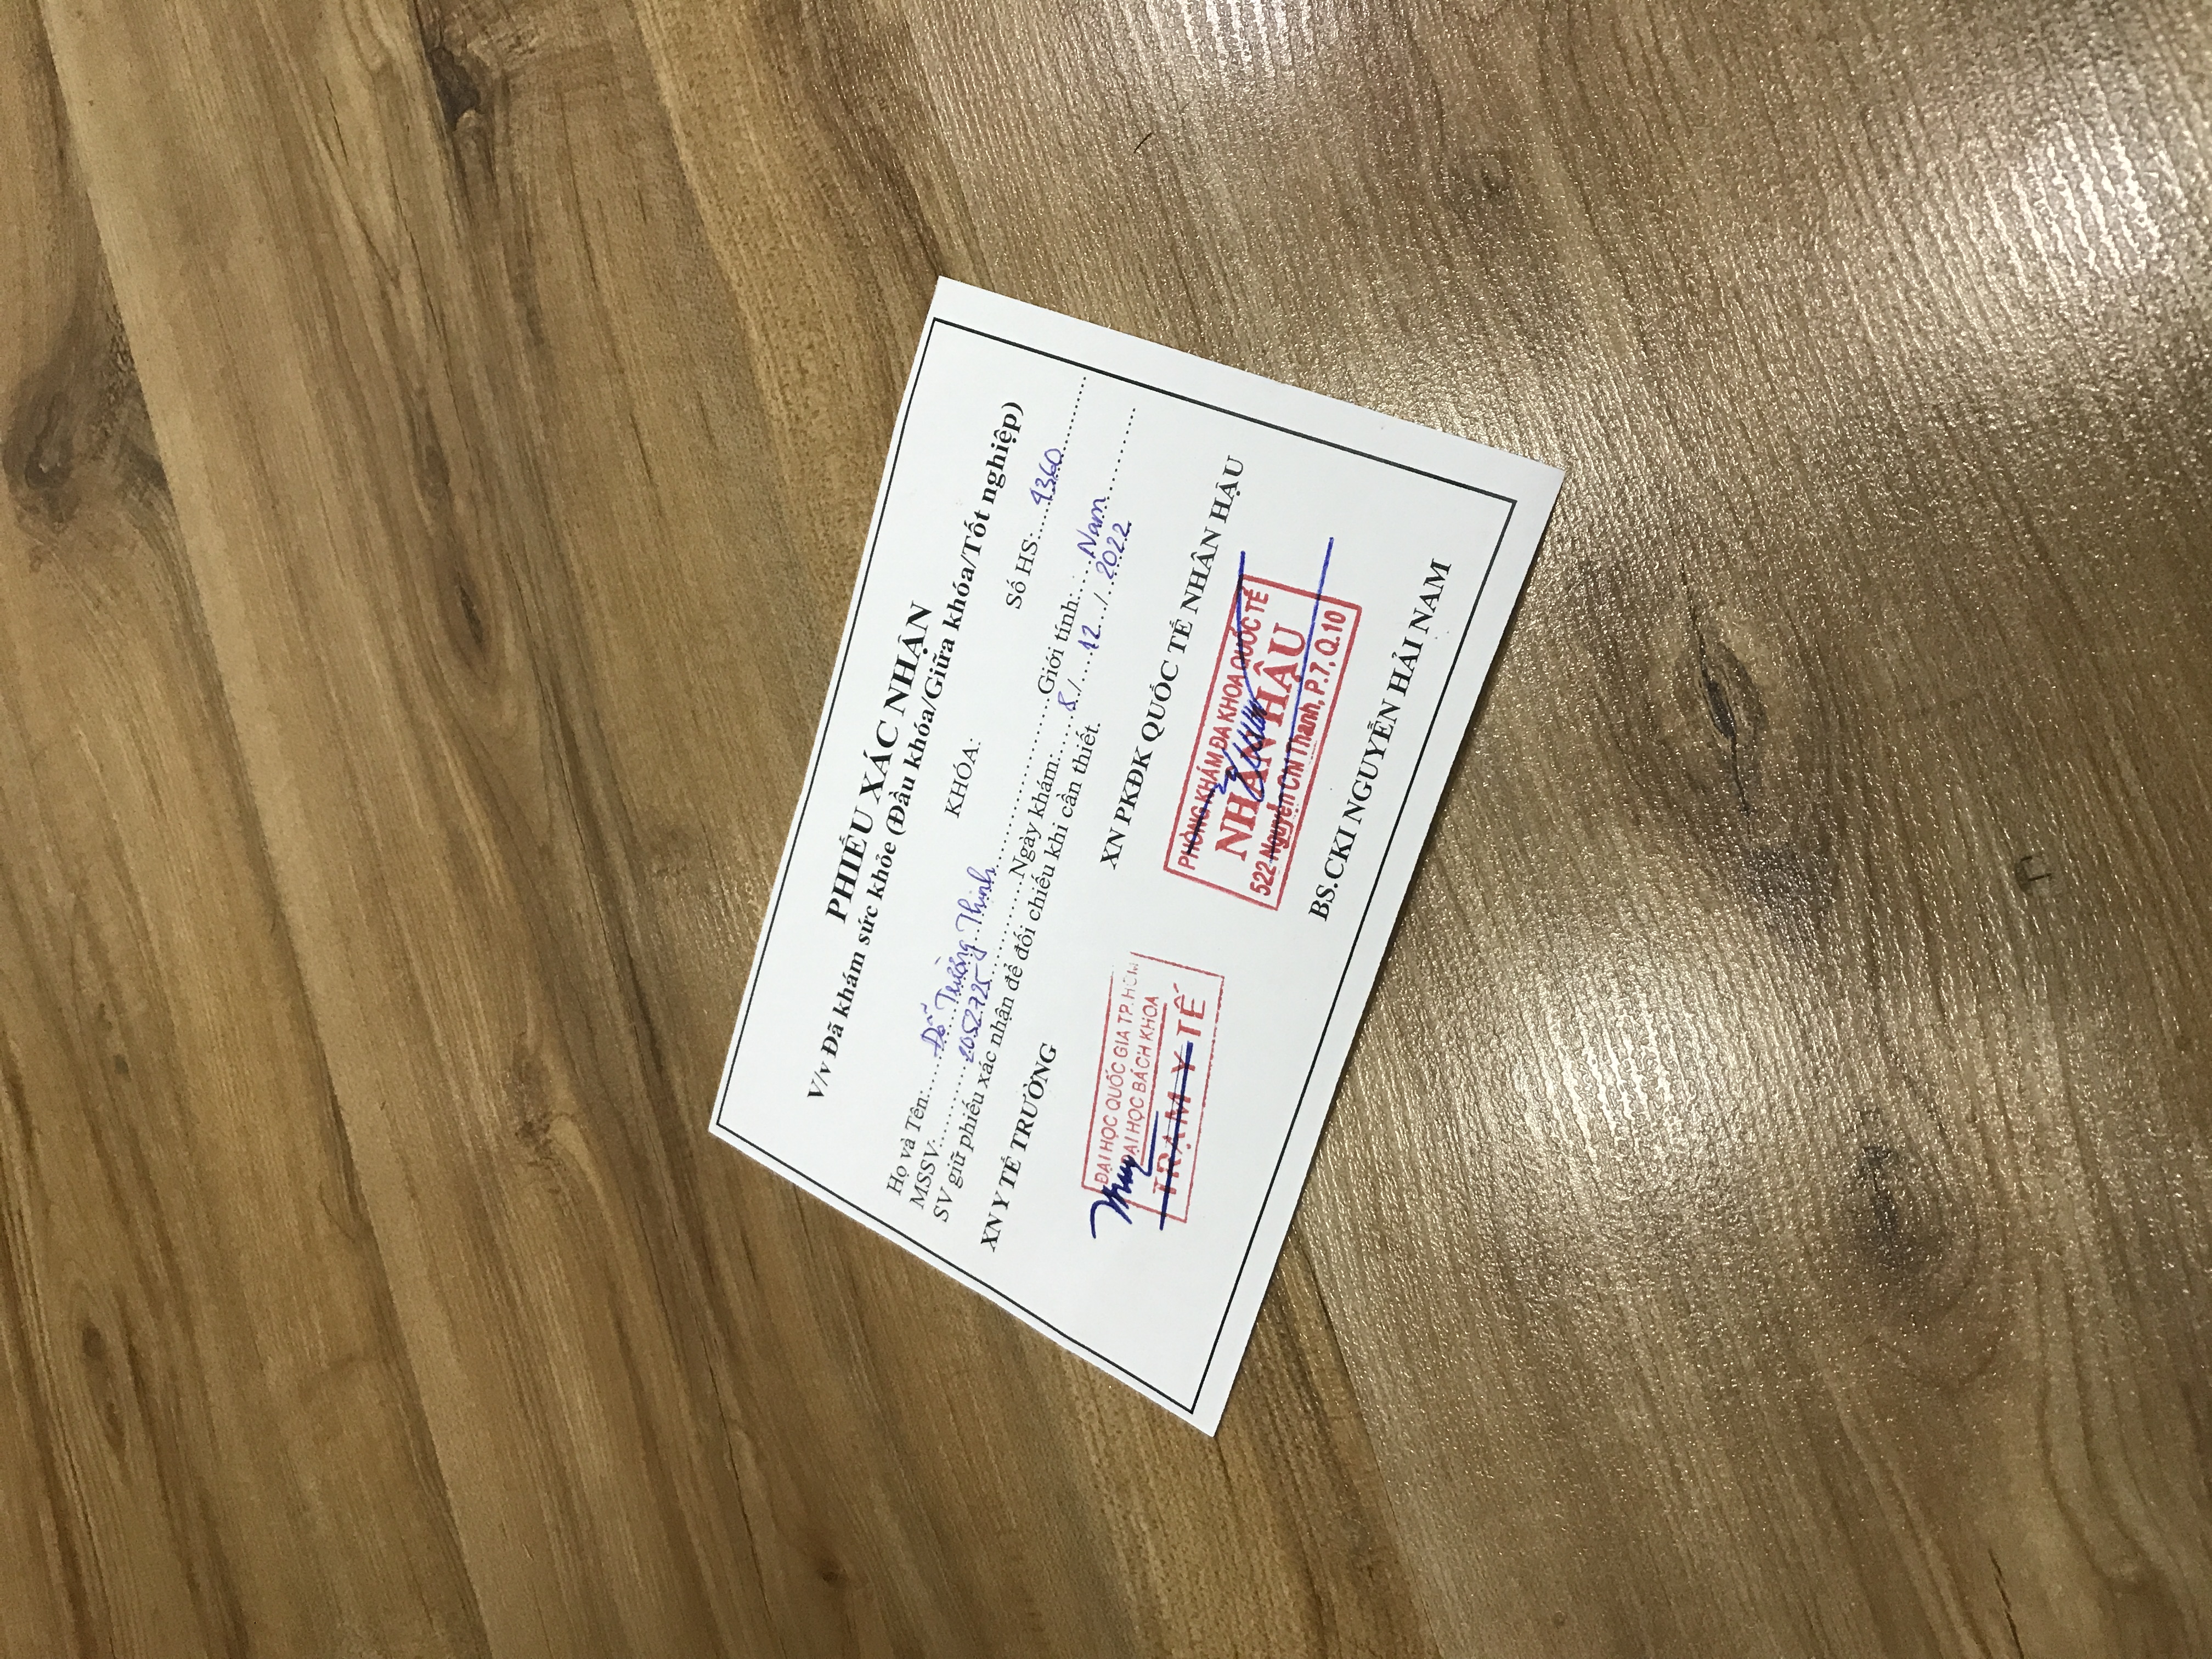 PHIẾU XÁC NHẬN
V/v Đã khám sức khỏe (Đầu khóa/Giữa khóa/Tốt nghiệp)
KHÓA: Số HS:..4360
Họ và Tên:....Đỗ Trường Thịnh....Giới tính:....Nam....
MSSV:....2052725....Ngày khám:....8./....12.../..2022
SV giữ phiếu xác nhận để đối chiếu khi cần thiết.
XN Y TẾ TRƯỜNG
XN PKĐK QUỐC TẾ NHÂN HẬU
ĐẠI HỌC QUỐC GIA TP.HCM
ĐẠI HỌC BÁCH KHOA
TRẠM Y TẾ
PHÒNG KHÁM ĐA KHOA QUỐC TẾ
NHÂN HẬU
522 Nguyễn Chí Thanh, P.7, Q.10
BS.CKI NGUYỄN HẢI NAM